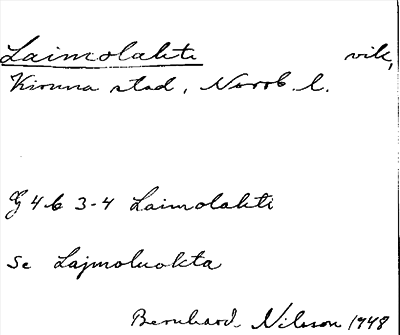 Laimolahti vik,
Kiruna stad, Norrb. l.
4b 3-4 Laimolahti
se Lajmoluokta
Bernhard Nilsson 1948